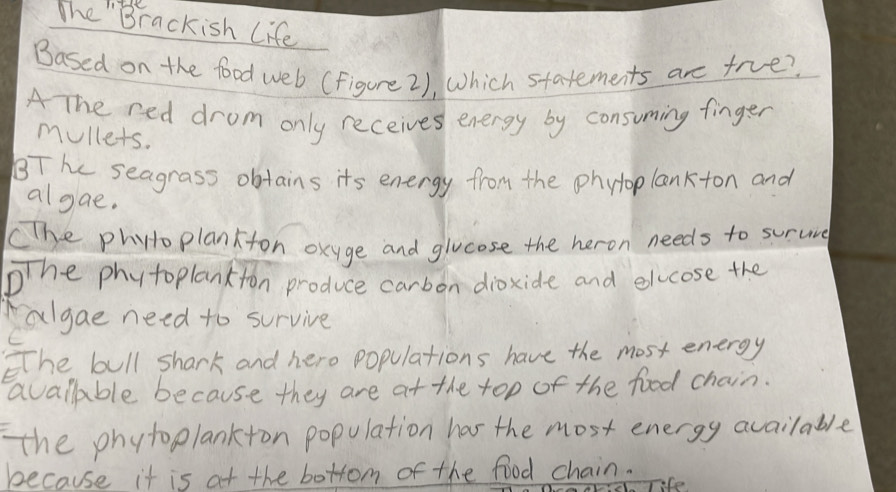 The Brackish Life
Based on the food web (Figure 2), which statements are true?
A The red drum only receives energy by consuming finger
mullets.
B The seagrass obtains its energy from the phytoplankton and
algae.
C The phytoplankton oxyge and glucose the heron needs to survive
D The phytoplankton produce carbon dioxide and glucose the
algae need to survive
E The bull shark and hero populations have the most energy
available because they are at the top of the food chain.
The phytoplankton population has the most energy available
because it is at the bottom of the food chain.
Life